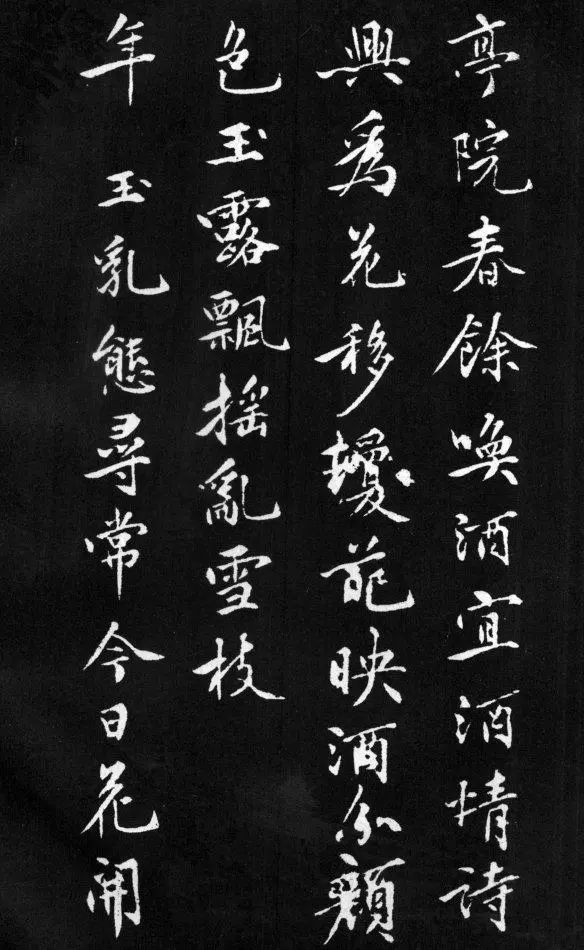 亭院春餘喚酒宜酒情詩
興為花移瓊葩映酒分顏
色玉露飄搖亂雪枝
年 玉乳態尋常今日花開